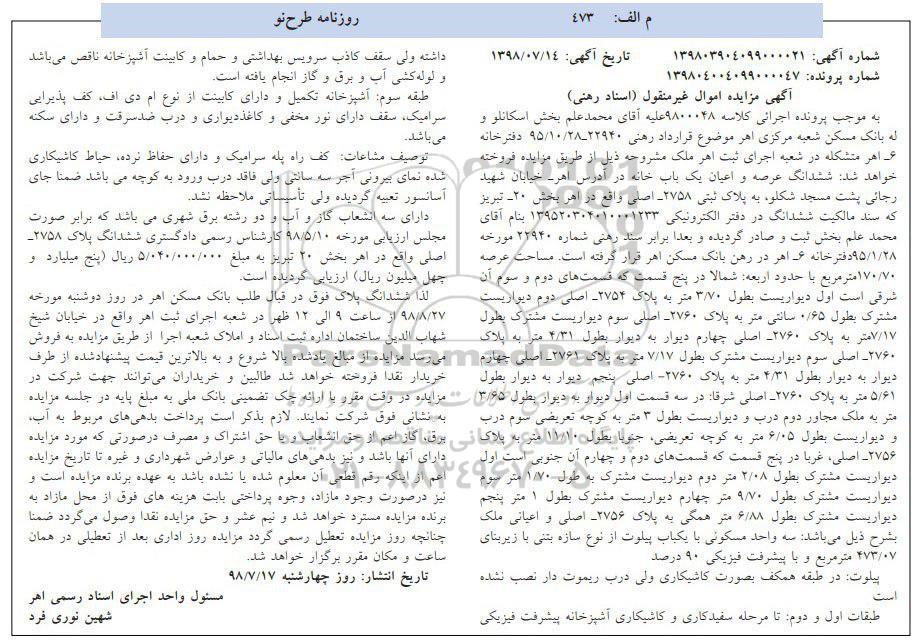 م الف: ۴۷۳
روزنامه طرح‌نو
شماره آگهی: ۱۳۹۸۰۳۹۰۴۰۹۹۰۰۰۰۲۱
تاریخ آگهی: ۱۳۹۸/۰۷/۱۴
شماره پرونده: ۱۳۹۸۰۴۰۰۴۰۹۹۰۰۰۰۴۷
آگهی مزایده اموال غیرمنقول (اسناد رهنی)
به موجب پرونده اجرائی کلاسه ۹۸۰۰۰۴۸علیه آقای محمدعلم بخش اسکانلو و
له بانک مسکن شعبه مرکزی اهر موضوع قرارداد رهنی ۲۲۹۴۰ـ۹۵/۱۰/۲۸ دفترخانه
۶ـ اهر متشکله در شعبه اجرای ثبت اهر ملک مشروحه ذیل از طریق مزایده فروخته
خواهد شد: ششدانگ عرصه و اعیان یک باب خانه در آدرس اهرـ خیابان شهید
رجائی پشت مسجد شکلو، به پلاک ثبتی ۲۷۵۸ـ اصلی واقع در اهر بخش ۲۰ـ تبریز
که سند مالکیت ششدانگ در دفتر الکترونیکی ۱۳۹۵۲۰۳۰۴۰۱۰۰۰۱۲۳۳ بنام آقای
محمد علم بخش ثبت و صادر گردیده و بعدا برابر سند رهنی شماره ۲۲۹۴۰ مورخه
۹۵/۱/۲۸دفترخانه ۶ـ اهر در رهن بانک مسکن اهر قرار گرفته است. مساحت عرصه
۱۷۰/۷۰مترمربع با حدود اربعه: شمالا در پنج قسمت که قسمت‌های دوم و سوم آن
شرقی است اول دیواریست بطول ۳/۷۰ متر به پلاک ۲۷۵۴ـ اصلی دوم دیواریست
مشترک بطول ۰/۶۵ سانتی متر به پلاک ۲۷۶۰ـ اصلی سوم دیواریست مشترک بطول
۷/۱۷متر به پلاک ۲۷۶۰ـ اصلی چهارم دیوار به دیوار بطول ۴/۳۱ متر به پلاک
۲۷۶۰ـ اصلی سوم دیواریست مشترک بطول ۷/۱۷ متر به پلاک ۲۷۶۱ـ اصلی چهارم
دیوار به دیوار بطول ۴/۳۱ متر به پلاک ۲۷۶۰- اصلی پنجم دیوار به دیوار بطول
۵/۶۱ متر به پلاک ۲۷۶۰ـ اصلی شرقا: در سه قسمت اول دیوار به دیوار بطول ۳/۶۵
متر به ملک مجاور دوم درب و دیواریست بطول ۳ متر به کوچه تعریضی سوم درب
و دیواریست بطول ۶/۰۵ متر به کوچه تعریضی، جنوبا بطول ۱۱/۱۰ متر به پلاک
۲۷۵۶ـ اصلی، غربا در پنج قسمت که قسمت‌های دوم و چهارم آن جنوبی است اول
دیواریست مشترک بطول ۲/۰۸ متر دوم دیواریست مشترک به طول ۱/۷۰ متر سوم
دیواریست مشترک بطول ۹/۷۰ متر چهارم دیواریست مشترک بطول ۱ متر پنجم
دیواریست مشترک بطول ۶/۸۸ متر همگی به پلاک ۲۷۵۶ـ اصلی و اعیانی ملک
بشرح ذیل می‌باشد: سه واحد مسکونی با یکباب پیلوت از نوع سازه بتنی با زیربنای
۴۷۳/۰۷ مترمربع و با پیشرفت فیزیکی ۹۰ درصد
پیلوت: در طبقه همکف بصورت کاشیکاری ولی درب ریموت دار نصب نشده
است
طبقات اول و دوم: تا مرحله سفیدکاری و کاشیکاری آشپزخانه پیشرفت فیزیکی
داشته ولی سقف کاذب سرویس بهداشتی و حمام و کابینت آشپزخانه ناقص می‌باشد
و لوله‌کشی آب و برق و گاز انجام یافته است.
طبقه سوم: آشپزخانه تکمیل و دارای کابینت از نوع ام دی اف، کف پذیرایی
سرامیک، سقف دارای نور مخفی و کاغذدیواری و درب ضدسرقت و دارای سکنه
می‌باشد.
توصیف مشاعات: کف راه پله سرامیک و دارای حفاظ نرده، حیاط کاشیکاری
شده نمای بیرونی آجر سه سانتی ولی فاقد درب ورود به کوچه می باشد ضمنا جای
آسانسور تعبیه گردیده ولی تأسیساتی ملاحظه نشد.
دارای سه انشعاب گاز و آب و دو رشته برق شهری می باشد که برابر صورت
مجلس ارزیابی مورخه ۹۸/۵/۱۰ کارشناس رسمی دادگستری ششدانگ پلاک ۲۷۵۸ـ
اصلی واقع در اهر بخش ۲۰ تبریز به مبلغ ۵/۰۴۰/۰۰۰/۰۰۰ ریال (پنج میلیارد و
چهل میلیون ریال) ارزیابی گردیده است.
لذا ششدانگ پلاک فوق در قبال طلب بانک مسکن اهر در روز دوشنبه مورخه
۹۸/۸/۲۷ از ساعت ۹ الی ۱۲ ظهر در شعبه اجرای ثبت اهر واقع در خیابان شیخ
شهاب الدین ساختمان اداره ثبت اسناد و املاک شعبه اجرا از طریق مزایده به فروش
می‌رسد مزایده از مبالغ یادشده بالا شروع و به بالاترین قیمت پیشنهادشده از طرف
خریدار نقدا فروخته خواهد شد طالبین و خریداران می‌توانند جهت شرکت در
مزایده در وقت مقرر با ارائه چک تضمینی بانک ملی به مبلغ پایه در جلسه مزایده
به نشانی فوق شرکت نمایند. لازم بذکر است پرداخت بدهی‌های مربوط به آب،
برق، گاز اعم از حق انشعاب و یا حق اشتراک و مصرف درصورتی که مورد مزایده
دارای آنها باشد و نیز بدهی‌های مالیاتی و عوارض شهرداری و غیره تا تاریخ مزایده
اعم از اینکه رقم قطعی آن معلوم شده یا نشده باشد به عهده برنده مزایده است و
نیز درصورت وجود مازاد، وجوه پرداختی بابت هزینه های فوق از محل مازاد به
برنده مزایده مسترد خواهد شد و نیم عشر و حق مزایده نقدا وصول می‌گردد ضمنا
چنانچه روز مزایده تعطیل رسمی گردد مزایده روز اداری بعد از تعطیلی در همان
ساعت و مکان مقرر برگزار خواهد شد.
تاریخ انتشار: روز چهارشنبه ۹۸/۷/۱۷
مسئول واحد اجرای اسناد رسمی اهر
شهین نوری فرد
ParsNamadData